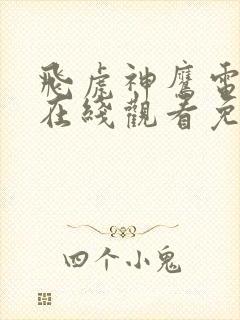 飛虎神鷹電
在綫觀看免
四个小鬼